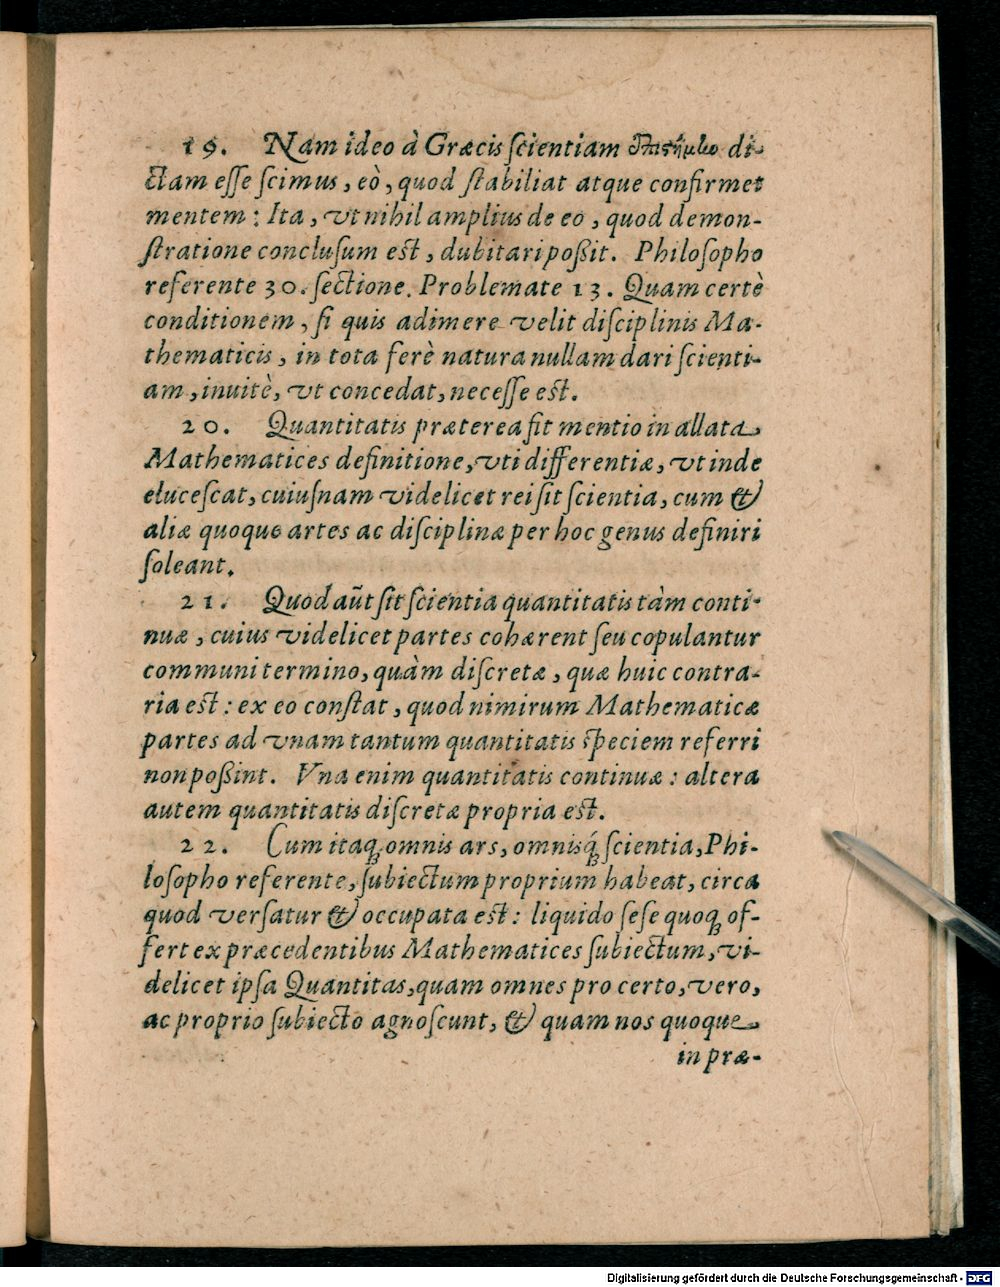 19. Nam ideo à Græcis ſcientiam ἐπιστήμην di-
ctam eſſe ſcimus, eò, quod ſtabiliat atque confirmet
mentem: Ita, vt nihil amplius de eo, quod demon-
ſtratione concluſum eſt, dubitari poßit. Philoſopho
referente 30. ſectione. Problemate 13. Quam certè
conditionem, ſi quis adimere velit diſciplinis Ma-
thematicis, in tota ferè natura nullam dari ſcienti-
am, inuitè, vt concedat, neceſſe eſt.
20. Quantitatis præterea fit mentio in allata
Mathematices definitione, vti differentiæ, vt inde
eluceſcat, cuiuſnam videlicet rei ſit ſcientia, cum &
aliæ quoque artes ac diſciplinæ per hoc genus definiri
ſoleant.
21. Quod aūt ſit ſcientia quantitatis tàm conti-
nuæ, cuius videlicet partes cohærent ſeu copulantur
communi termino, quàm diſcretæ, quæ huic contra-
ria eſt: ex eo conſtat, quod nimirum Mathematicæ
partes ad vnam tantum quantitatis ſpeciem referri
non poßint. Vna enim quantitatis continuæ: altera
autem quantitatis diſcretæ propria eſt.
22. Cum itaq; omnis ars, omnisq́; ſcientia, Phi-
loſopho referente, ſubiectum proprium habeat, circa
quod verſatur & occupata eſt: liquido ſeſe quoq; of-
fert ex præcedentibus Mathematices ſubiectum, vi-
delicet ipſa Quantitas, quam omnes pro certo, vero,
ac proprio ſubiecto agnoſcunt, & quam nos quoque
in præ-
Digitalisierung gefördert durch die Deutsche Forschungsgemeinschaft - DFG